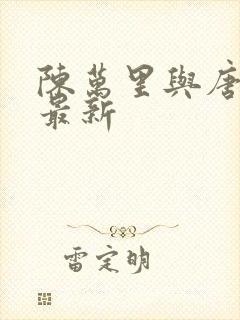 陳萬里與唐
最新
雷定明